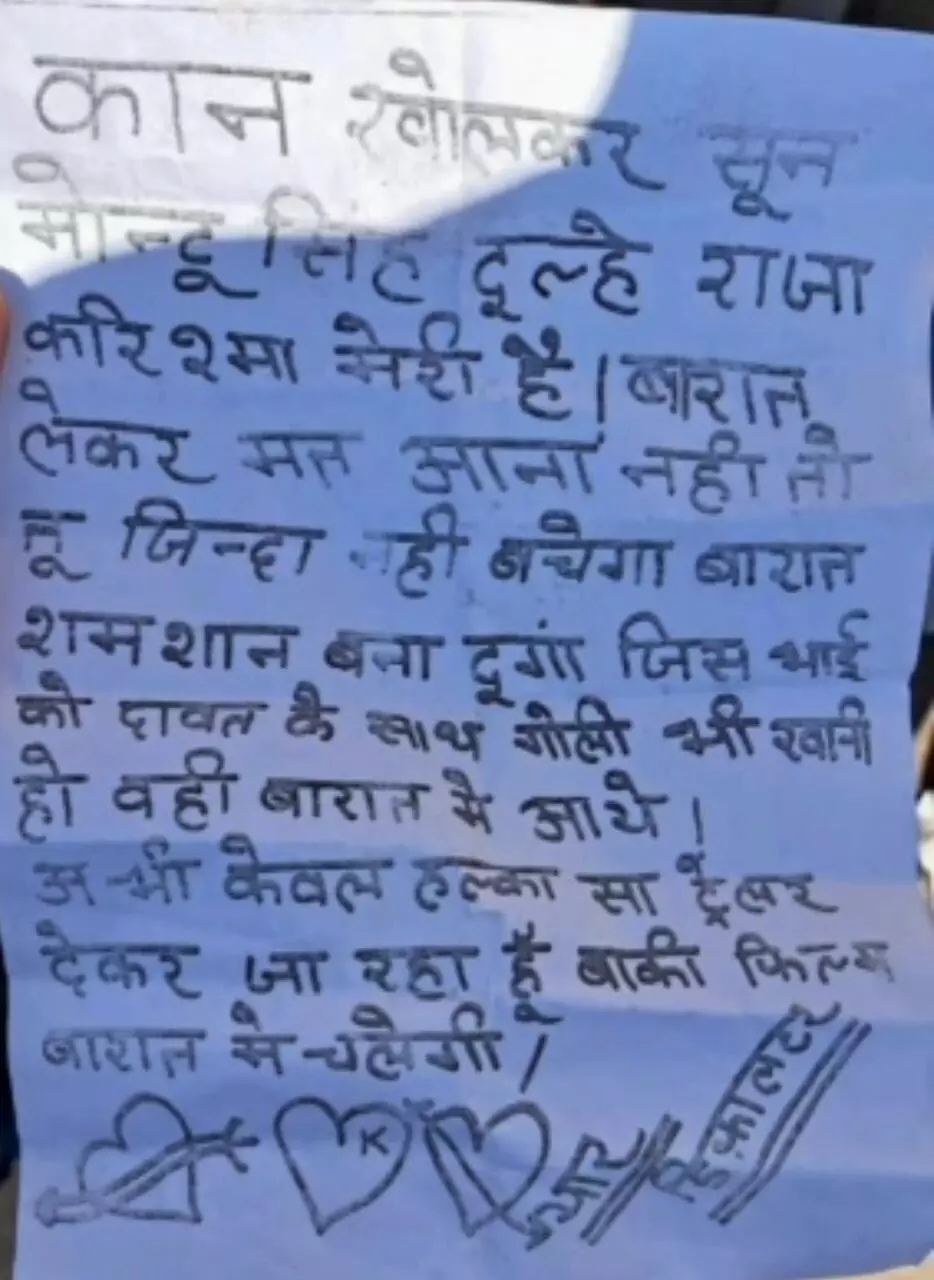 कान खोलकर सून
मोन्टू सिंह दूल्हे राजा
करिश्मा मेरी है। बारात
लेकर मत आना नही तो
तू जिन्दा नही बचेगा बारात
शमशान बना दूगां जिस भाई
को दावत के साथ गोली भी खानी
हो वही बारात मे आये।
अभी केवल हल्का सा ट्रेलर
देकर जा रहा हूँ बाकी फिल्म
बारात मे चलेगी।
K
प्यार
डिफ़ालटर